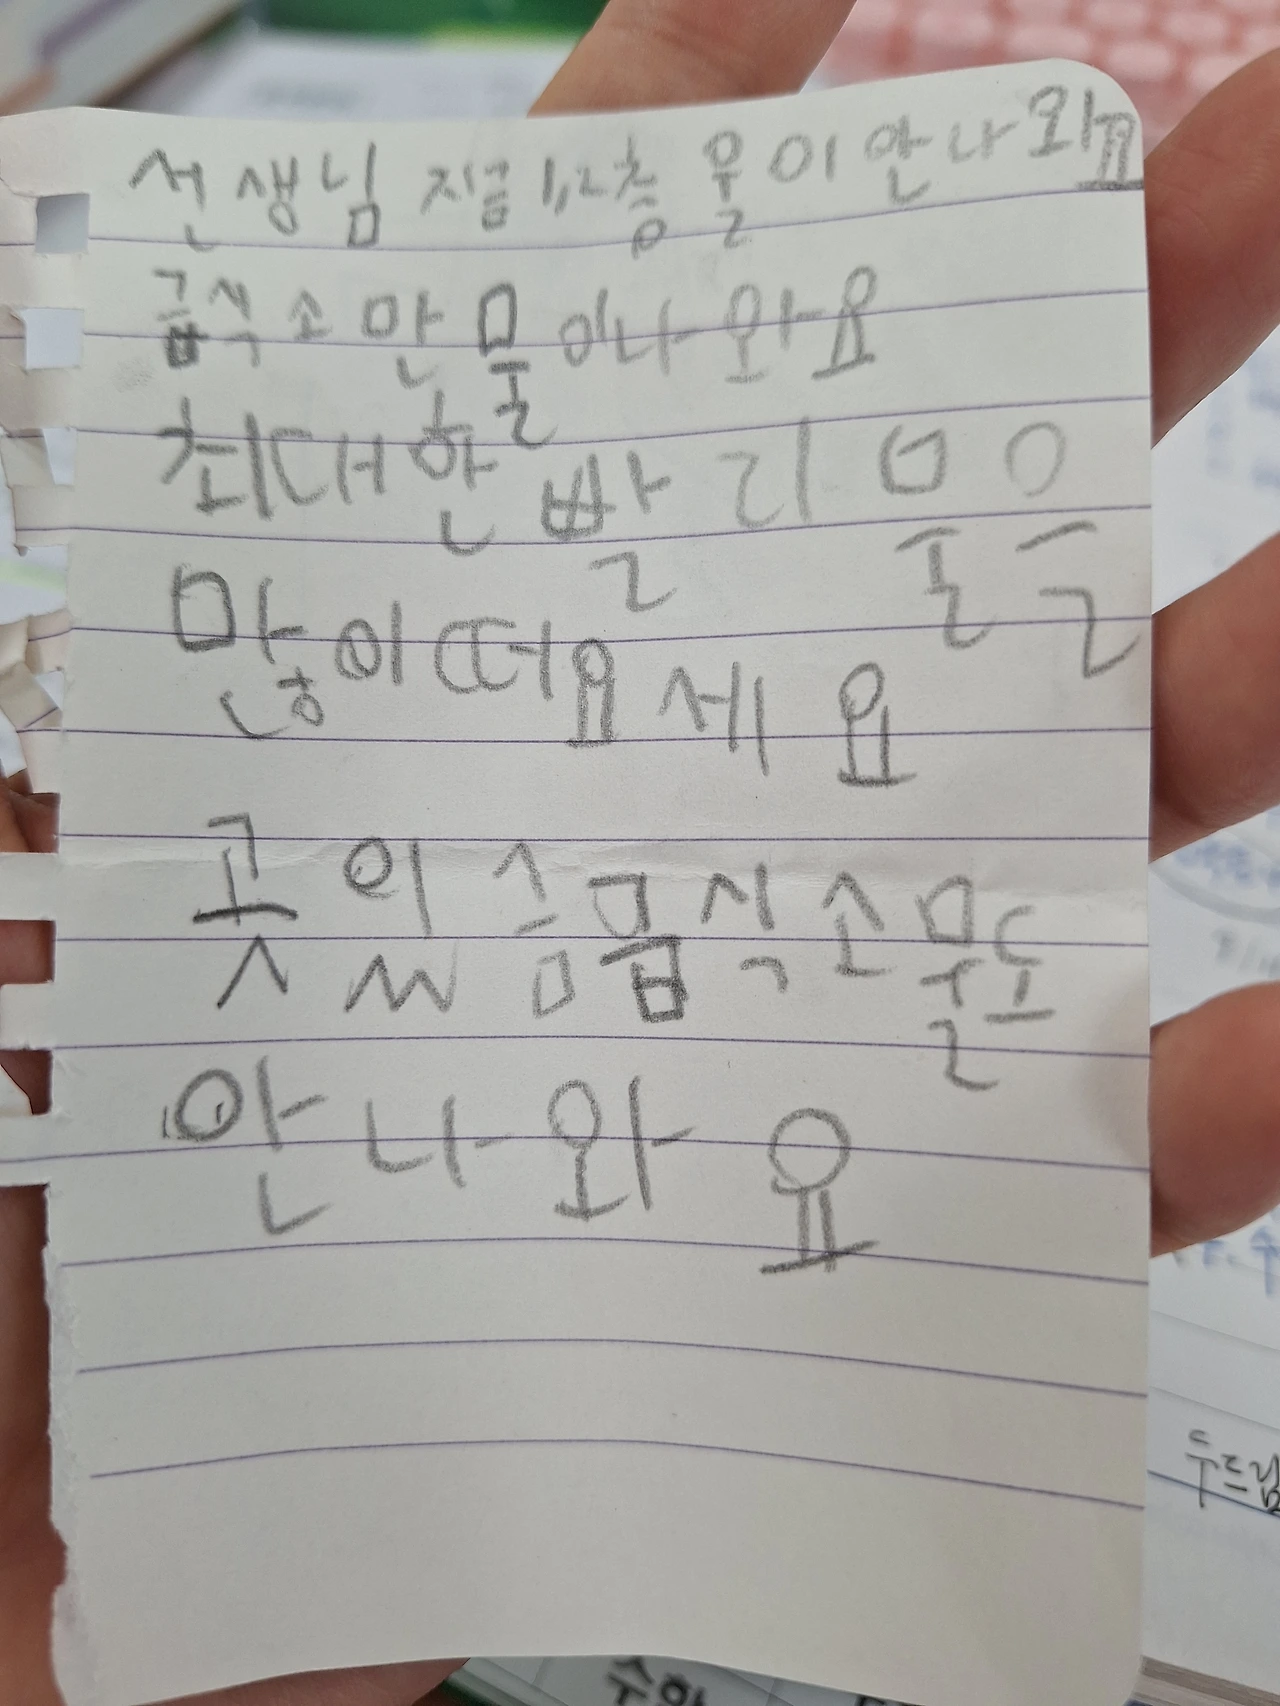 선생님 지금 1,2층 울이 안나와요
급식소만 물이나와요
최대한 빨리 물을
많이떠요세요
곳있슴급식소물도
안나와요
두드림